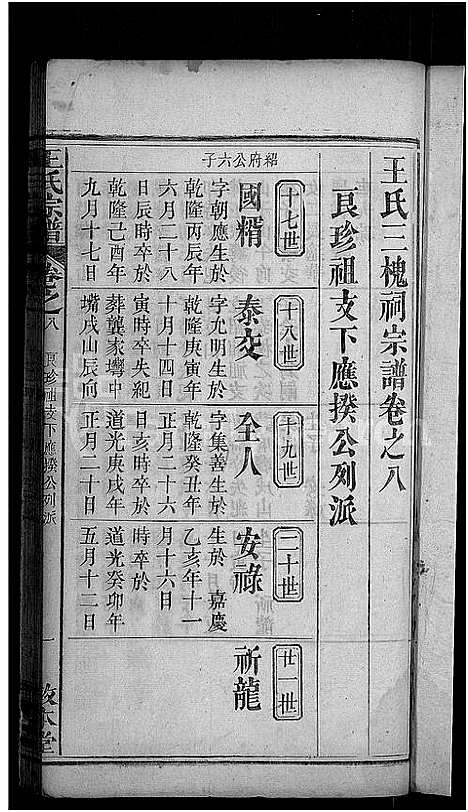 王氏三槐祠宗譜卷之八
良珍祖支下應揆公列派
紹府公六子
十七世
國糈
字朝應生於
乾隆丙辰年
六月二十八
日辰時卒於
乾隆己酉年
九月十七日
十八世
泰交
字允明生於
乾隆庚寅年
十月十四日
寅時卒失紀
葬龔家塝中
嘴戌山辰向
十九世
全人
字集善生於
乾隆癸丑年
正月二十六
日亥時卒於
道光庚戌年
正月二十日
二十世
安祿
生於 嘉慶
乙亥年十一
月十六日
時卒於
道光癸卯年
五月十二日
廿一世
祈龍
王氏宗譜 卷之八 良珍祖支下應揆公列派 一 敦本堂